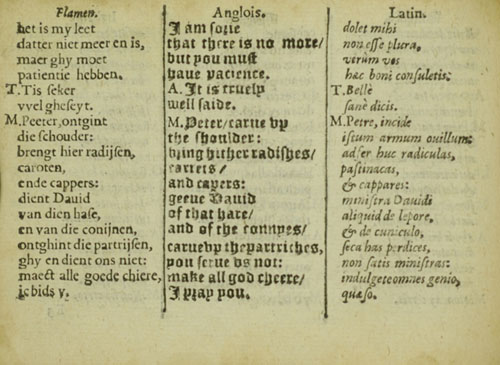 Flamen.
het is my leet
datter niet meer en is,
maer ghy moet
patientie hebben.
T. Tis seker
vvel gheseyt.
M. Peeter, ontgint
die schouder:
brengt hier radijsen,
caroten,
ende cappers:
dient Dauid
van dien hase,
en van die conijnen,
ontghint die partrijsen,
ghy en dient ons niet:
maect alle goede chiere,
ic bids v.
Anglois.
I am sorie
that there is no more/
but you must
haue pacience.
A. It is truely
well saide.
M. Peter/carue vp
the shoulder:
bring hither radishes/
carrets/
and capers:
geeue Dauid
of that hare/
and of the connyes/
carue vp the partriches,
you serue vs not:
make all god cheere/
I pray you.
Latin.
dolet mihi
non esse plura,
verum vos
hac boni consuletis:
T. Bellè
sanè dicis.
M. Petre, incide
istum armum ouillum:
adfer huc radiculas,
pastinacas,
& cappares:
ministra Dauidi
aliquid de lepore,
& de cuniculo,
seca has perdices,
non satis ministras:
indulgete omnes genio,
quæso.